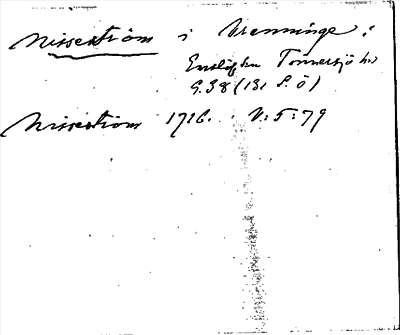 Nisseström i Vrenninge:
Enslighn Tönnersjö hd
G.38 (131 S.Ö)
Nisseström 1716. V:5:79